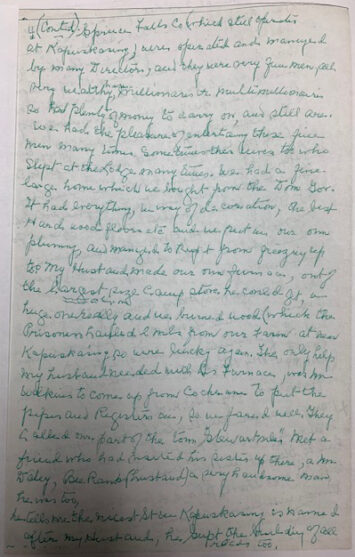 (Contd) Spruce Falls Co (which still operates
at Kapuskasing) were operated and managed
by many Directors, and they were very fine men, all
very wealthy, millionaires or multimillionaires
so had plenty of money to carry on, and still are.
We had the pleasure of entertaining these fine
men many times. Sometimes their wives too who
slept at the Lodge many times. We had a fine
large home which we bought from the Dom Gov.
It had everything, in way of decoration, the best
Hard wood floors etc and we put in our own
plumbing, and managed to keep it from freezing up
too. My Husband made our own furnace, out of
the largest size Camp stove he could get, a
huge one really and we burned wood (which the
Prisoners hauled from our Farm at near
Kapuskasing, so were lucky again. The only help
my husband needed with his Furnace, was Mr
to come up from Cochrane to put the
pipes and Registers in, so we fared well. They
called our part of the town, Met a
friend who had his sister up there, a Mrs
Daley, (Husband) a very handsome man,
he was too,
he tells me the nicest St in Kapuskasing is named
after my Husband, he kept the building of all
roads too.